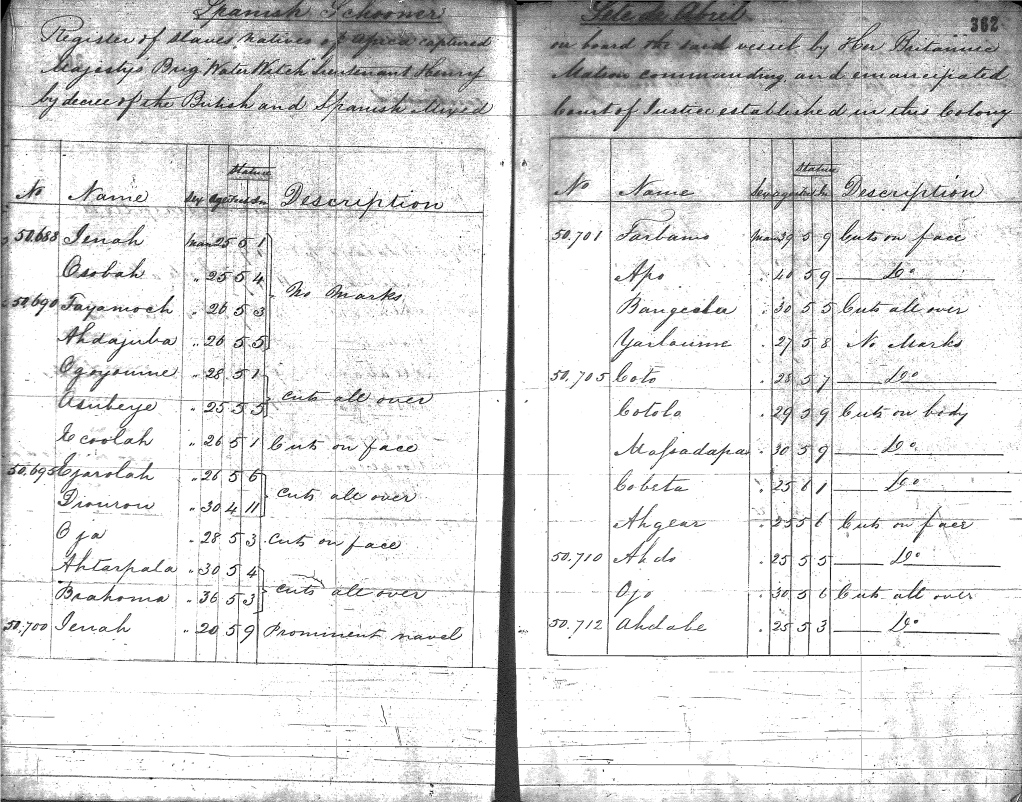 Spanish Schooner
Register of Slaves Natives of Africa captured
Majesty's Brig Water Witch Lieutenant Henry
by decree of the British and Spanish Mixed
Stature
No Name Sex Age Feet In Description
50.688 Jenah Man 25 5 1
Osobah " 25 5 4
No Marks
50.690 Fayamoch " 26 5 3
Ahdajuba " 26 5 5
Ogoyounne " 28 5 1
Cuts all over
Asubeye " 25 5 5
Ecoolah " 26 5 1 Cuts on face
50.695 Ojarolah " 26 5 6
Cuts all over
Diouron " 30 4 11
Oja " 28 5 3 Cuts on face
Ahtarpala " 30 5 4
Cuts all over
Brahoma " 36 5 3
50.700 Jenah " 20 5 9 Prominent navel
Sete de Abril
362
on board the said vessel by Her Britannic
Matson commanding and emancipated
Court of Justice established in this Colony
Stature
No Name Sex Age Feet In Description
50.701 Farbamo Man 39 5 9 Cuts on face
Apo " 40 5 9 Do
30 5 5 Cuts all over
Yarlounne " 27 5 8 No Marks
50.705 Coto " 28 5 7 Do
Cotola " 29 5 9 Cuts on body
Massadapa " 30 5 9 Do
Cobeta " 25 6 1 Do
Ahgear " 25 5 6 Cuts on face
50.710 Ahdo " 25 5 5 Do
Ojo " 30 5 6 Cuts all over
50.712 Ahdabe " 25 5 3 Do